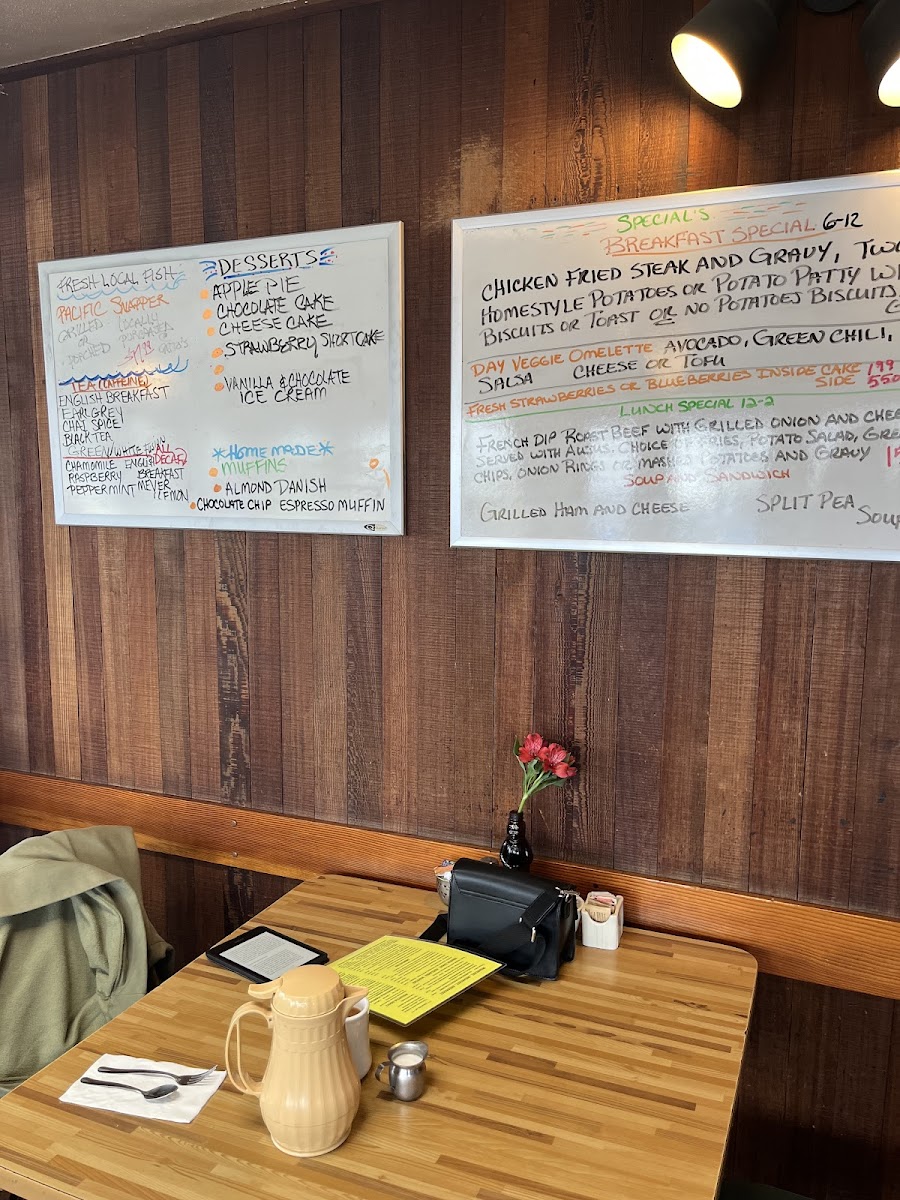 FRESH LOCAL FISH
PACIFIC SNAPPER
GRILLED LOCALLY
OR PURCHASED
POACHED
TEA (CAFFEINE)
ENGLISH BREAKFAST
EARL GREY
CHAI SPICE
BLACK TEA
GREEN/WHITE
ALL
DECAF
CHAMOMILE ENGLISH
RASPBERRY BREAKFAST
PEPPERMINT MEYER
LEMON
DESSERTS
APPLE PIE
CHOCOLATE CAKE
CHEESE CAKE
STRAWBERRY SHORTCAKE
VANILLA & CHOCOLATE
ICE CREAM
*HOMEMADE*
MUFFINS
ALMOND DANISH
CHOCOLATE CHIP ESPRESSO MUFFIN
SPECIAL'S
BREAKFAST SPECIAL 6-12
CHICKEN FRIED STEAK AND GRAVY, TWO
HOMESTYLE POTATOES OR POTATO PATTY WI
BISCUITS OR TOAST OR NO POTATOES BISCUITS
DAY VEGGIE OMELETTE AVOCADO, GREEN CHILI,
SALSA CHEESE OR TOFU
FRESH STRAWBERRIES OR BLUEBERRIES INSIDE CAKE 199
SIDE 550
LUNCH SPECIAL 12-2
FRENCH DIP ROAST BEEF WITH GRILLED ONION AND CHEE
SERVED WITH AUJUS. CHOICE OF FRIES, POTATO SALAD, GREE
CHIPS, ONION RINGS OR MASHED POTATOES AND GRAVY
SOUP AND SANDWICH
GRILLED HAM AND CHEESE SPLIT PEA
SOUP